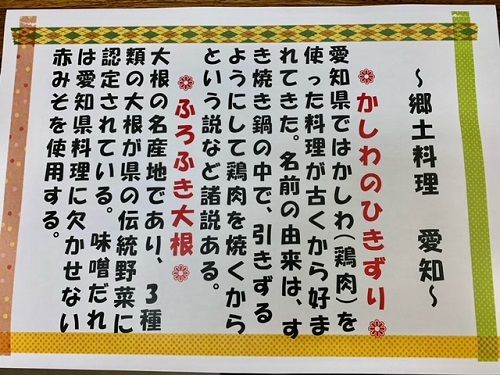 ～郷土料理　愛知～
かしわのひきずり
愛知県ではかしわ(鶏肉)を
使った料理が古くから好ま
れてきた。名前の由来は、す
き焼き鍋の中で、引きずる
ようにして鶏肉を焼くから
という説など諸説ある。
ふろふき大根
大根の名産地であり、3種
類の大根が県の伝統野菜に
認定されている。味噌だれ
は愛知県料理に欠かせない
赤みそを使用する。